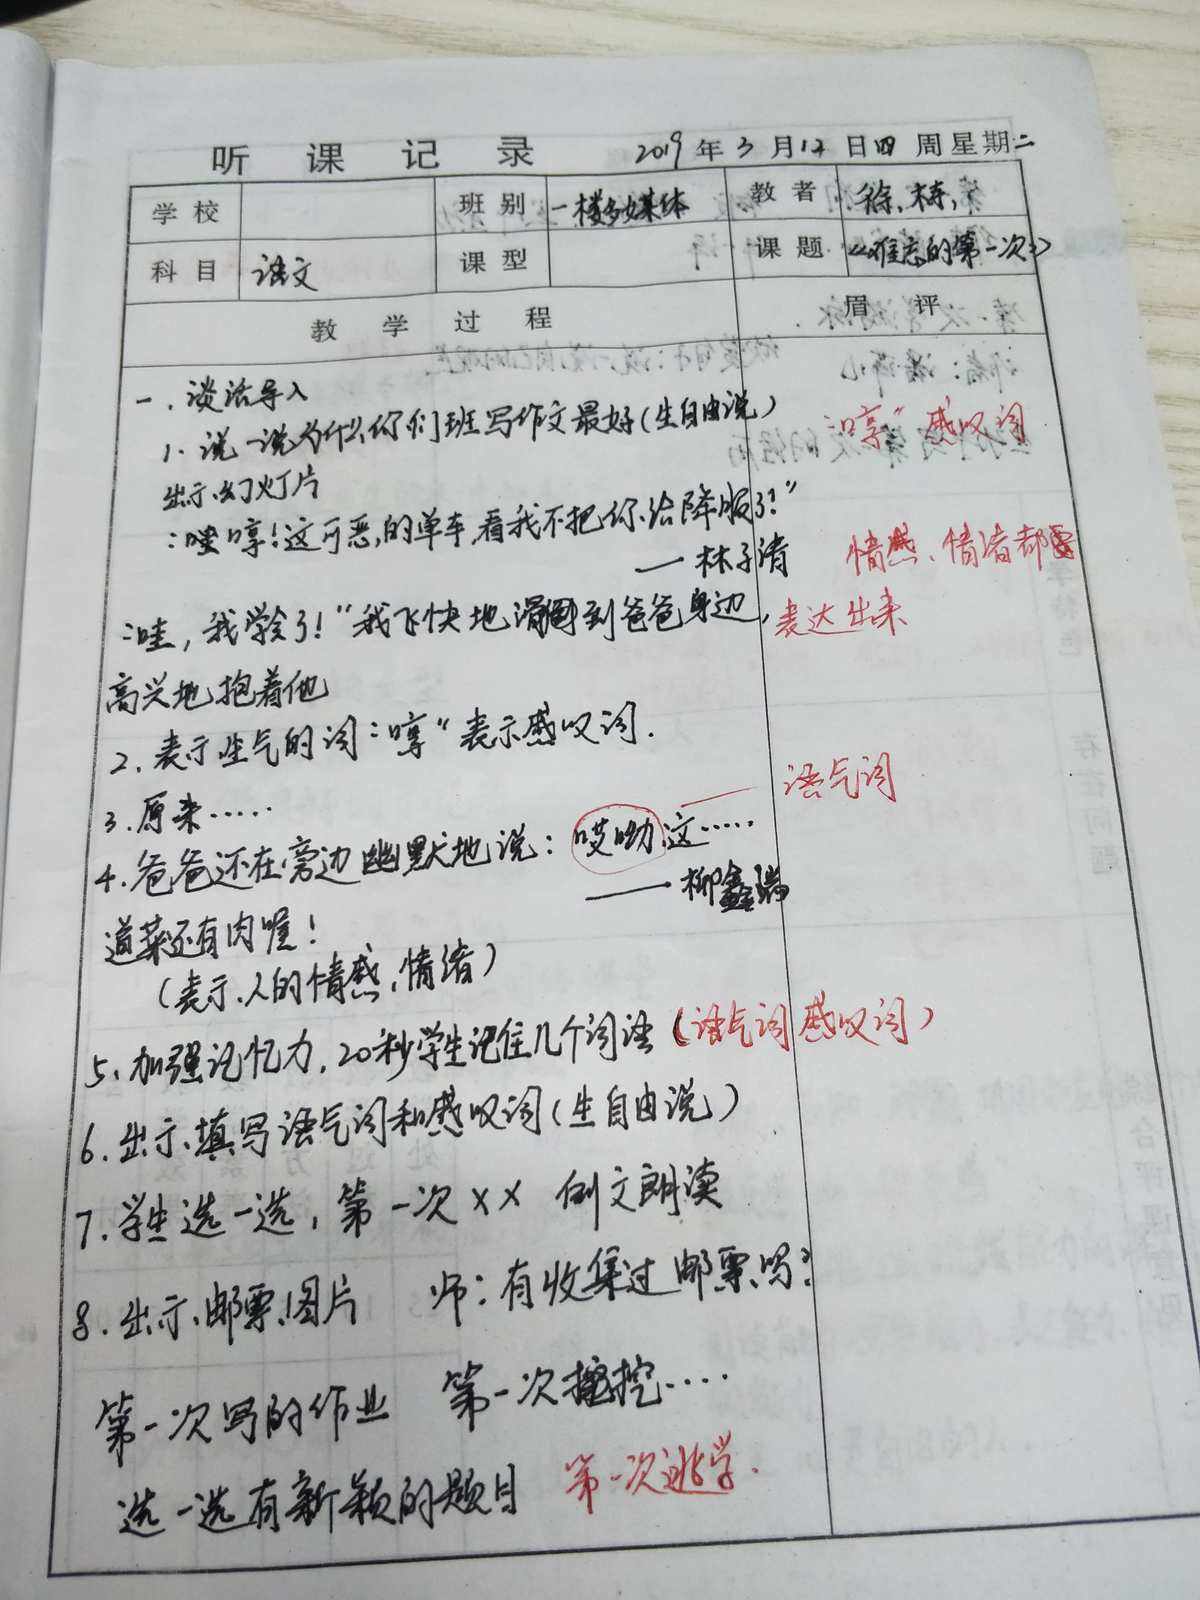 听课记录 2019年3月12日四周星期二
学校 班别 一楼多媒体 教者 徐栋
科目 语文 课型 课题 《难忘的第一次》
教学过程 眉评
一、谈话导入
1、说一说为什么你们班写作文最好(生自由说) “哼”感叹词
出示幻灯片
“哇哼!这可恶的单车,看我不把你给降服了!”
——林子清 情感、情绪都要
“哇,我学会了!”我飞快地滑到爸爸身边, 表达出来
高兴地抱着他
2、表示生气的词“哼”表示感叹词.
3.原来…… 语气词
4.爸爸还在旁边幽默地说:哎呦,这……
——柳鑫瑞
道菜还有肉喔!
(表示人的情感、情绪)
5、加强记忆力,20秒学生记住几个词语(语气词 感叹词)
6.出示填写语气词和感叹词(生自由说)
7.学生选一选,第一次×× 例文朗读
8.出示邮票图片 师:有收集过邮票吗?
第一次写的作业 第一次挖……
选一选有新颖的题目 第一次逃学.